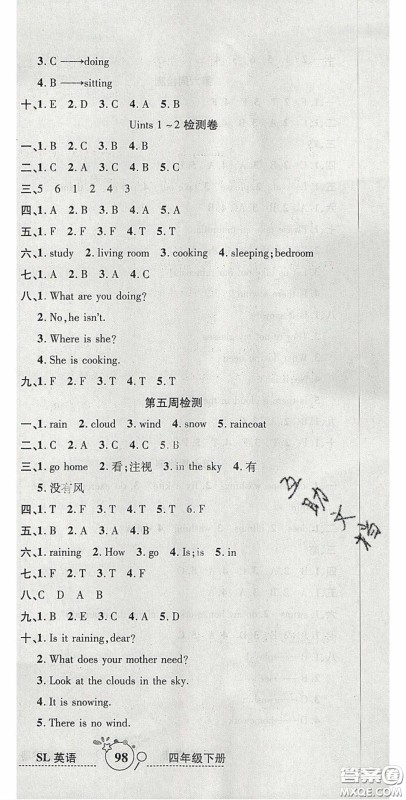 3. C ⟶doing
4. B ⟶sitting
十、1. E 2. D 3. C 4. A 5. B
Uints 1~2 检测卷
一、1. B 2. B 3. A 4. B
二、1. C 2. A 3. C 4. B 5. C
三、5 6 1 2 4 3
四、1. A 2. B 3. B 4. A 5. A
五、1. F 2. F 3. T 4. F 5. T
六、1. study 2. living room 3. cooking 4. sleeping;bedroom
七、1. A 2. B 3. A 4. B 5. A
八、1. What are you doing?
2. No,he isn't.
3. Where is she?
4. She is cooking.
九、1. F 2. F 3. T 4. T 5. T
第五周检测
一、1. rain 2. cloud 3. wind 4. snow 5. raincoat
二、1. C 2. A 3. C 4. C 5. B
三、1. go home 2. 看;注视 3. in the sky 4. 有
5. 没有风
四、1. T 2. F 3. T 4. T 5. T 6. F
五、1. B 2. A 3. A 4. A 5. B
六、1. raining 2. How 3. it 4. Is;is 5. in
七、1. F 2. F 3. T 4. T 5. F
八、C D A B
九、1. A 2. C 3. B 4. A 5. D
十、1. Is it raining,dear?
2. What does your mother need?
3. Look at the clouds in the sky.
4. It is snowing.
5. There is no wind.
SL 英语 98 四年级下册
互助文档
答案圈
MXQE.COM